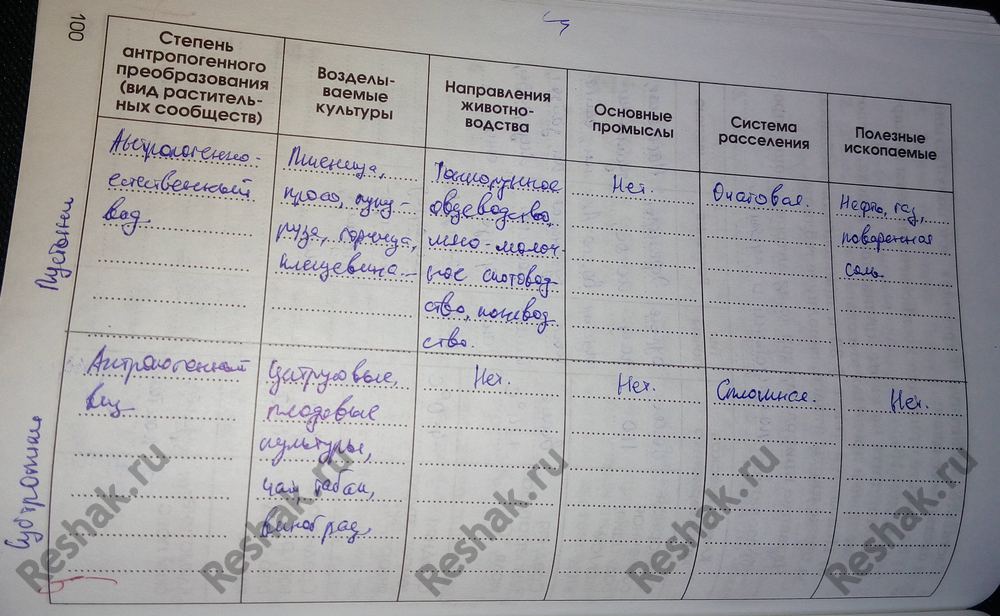 100
Степень
антропогенного
преобразования
(вид раститель-
ных сообществ)
Возделы-
ваемые
культуры
Направления
животно-
водства
Основные
промыслы
Система
расселения
Полезные
ископаемые
Пустынная
Антропогенно-
естественный
вид
Пшеница,
просо, куку-
руза, горчица,
клещевина
Тонкорунное
овцеводство,
мясо-молоч-
ное скотовод
ство, коневод
ство
Нет
Очаговая
Нефть, газ,
поваренная
соль
Субтропики
Антропогенный
вид
Цитрусовые,
плодовые
культуры,
чай, табак,
виноград
Нет.
Нет.
Сплошная.
Нет.
Reshak.ru
Reshak.ru
Reshak.ru
Reshak.ru